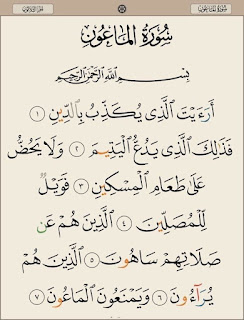 سُورَةُ المَاعُونِ
بِسْمِ ٱللَّهِ ٱلرَّحْمَٰنِ ٱلرَّحِيمِ
أَرَءَيْتَ ٱلَّذِى يُكَذِّبُ بِٱلدِّينِ ١
فَذَٰلِكَ ٱلَّذِى يَدُعُّ ٱلْيَتِيمَ ٢ وَلَا يَحُضُّ
عَلَىٰ طَعَامِ ٱلْمِسْكِينِ ٣ فَوَيْلٌ
لِّلْمُصَلِّينَ ٤ ٱلَّذِينَ هُمْ عَن
صَلَاتِهِمْ سَاهُونَ ٥ ٱلَّذِينَ هُمْ
يُرَآءُونَ ٦ وَيَمْنَعُونَ ٱلْمَاعُونَ ٧